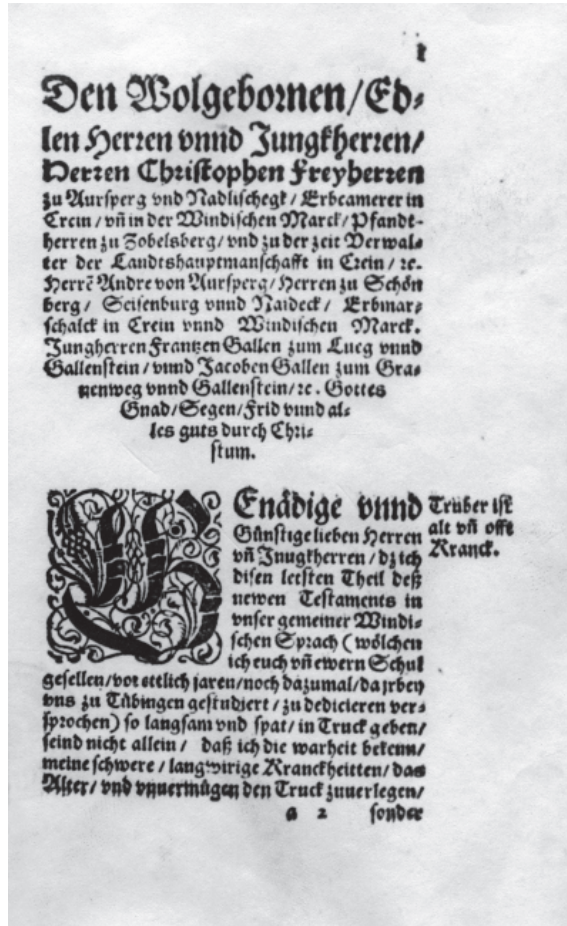 1
Den Wolgebornen/Ed-
len Herren vnnd Jungkherren/
Herren Christophen Freyherren
zu Aursperg vnd Nadlischegk/Erbcamerer in
Crein/vñ in der Windischen Marck/Pfandt-
herren zu Zobelsberg/vnd zu der zeit Verwal-
ter der Landtshauptmanschafft in Crein/ꝛc.
Herrẽ Andre von Aursperg/Herren zu Schön
berg/ Seisenburg vnnd Naideck/ Erbmar-
schalck in Crein vnnd Windischen Marck.
Jungherren Frantzen Gallen zum Lueg vnnd
Gallenstein/vnnd Jacoben Gallen zum Gra-
uenweg vnnd Gallenstein/ꝛc. Gottes
Gnad/Segen/Frid vnnd al-
les guts durch Chri-
stum.
GEnädige vnnd
Günstige lieben Herren
vñ Jnugkherren/dz ich
disen letsten Theil deß
newen Testaments in
vnser gemeiner Windi-
schen Sprach (wölchen
ich euch vñ ewern Schul
gesellen/vor ettlich jaren/noch dazumal/da jr bey
vns zu Tübingen gestudiert/zu dedicieren ver-
sprochen) so langsam vnd spat/in Truck geben/
seind nicht allein/ daß ich die warheit bekenn/
meine schwere/langwirige Kranckheitten/das
Alter/vnd vnuermügen den Truck zuuerlegen/
a 2 sonder
Truber ist
alt vñ offt
Kranck.